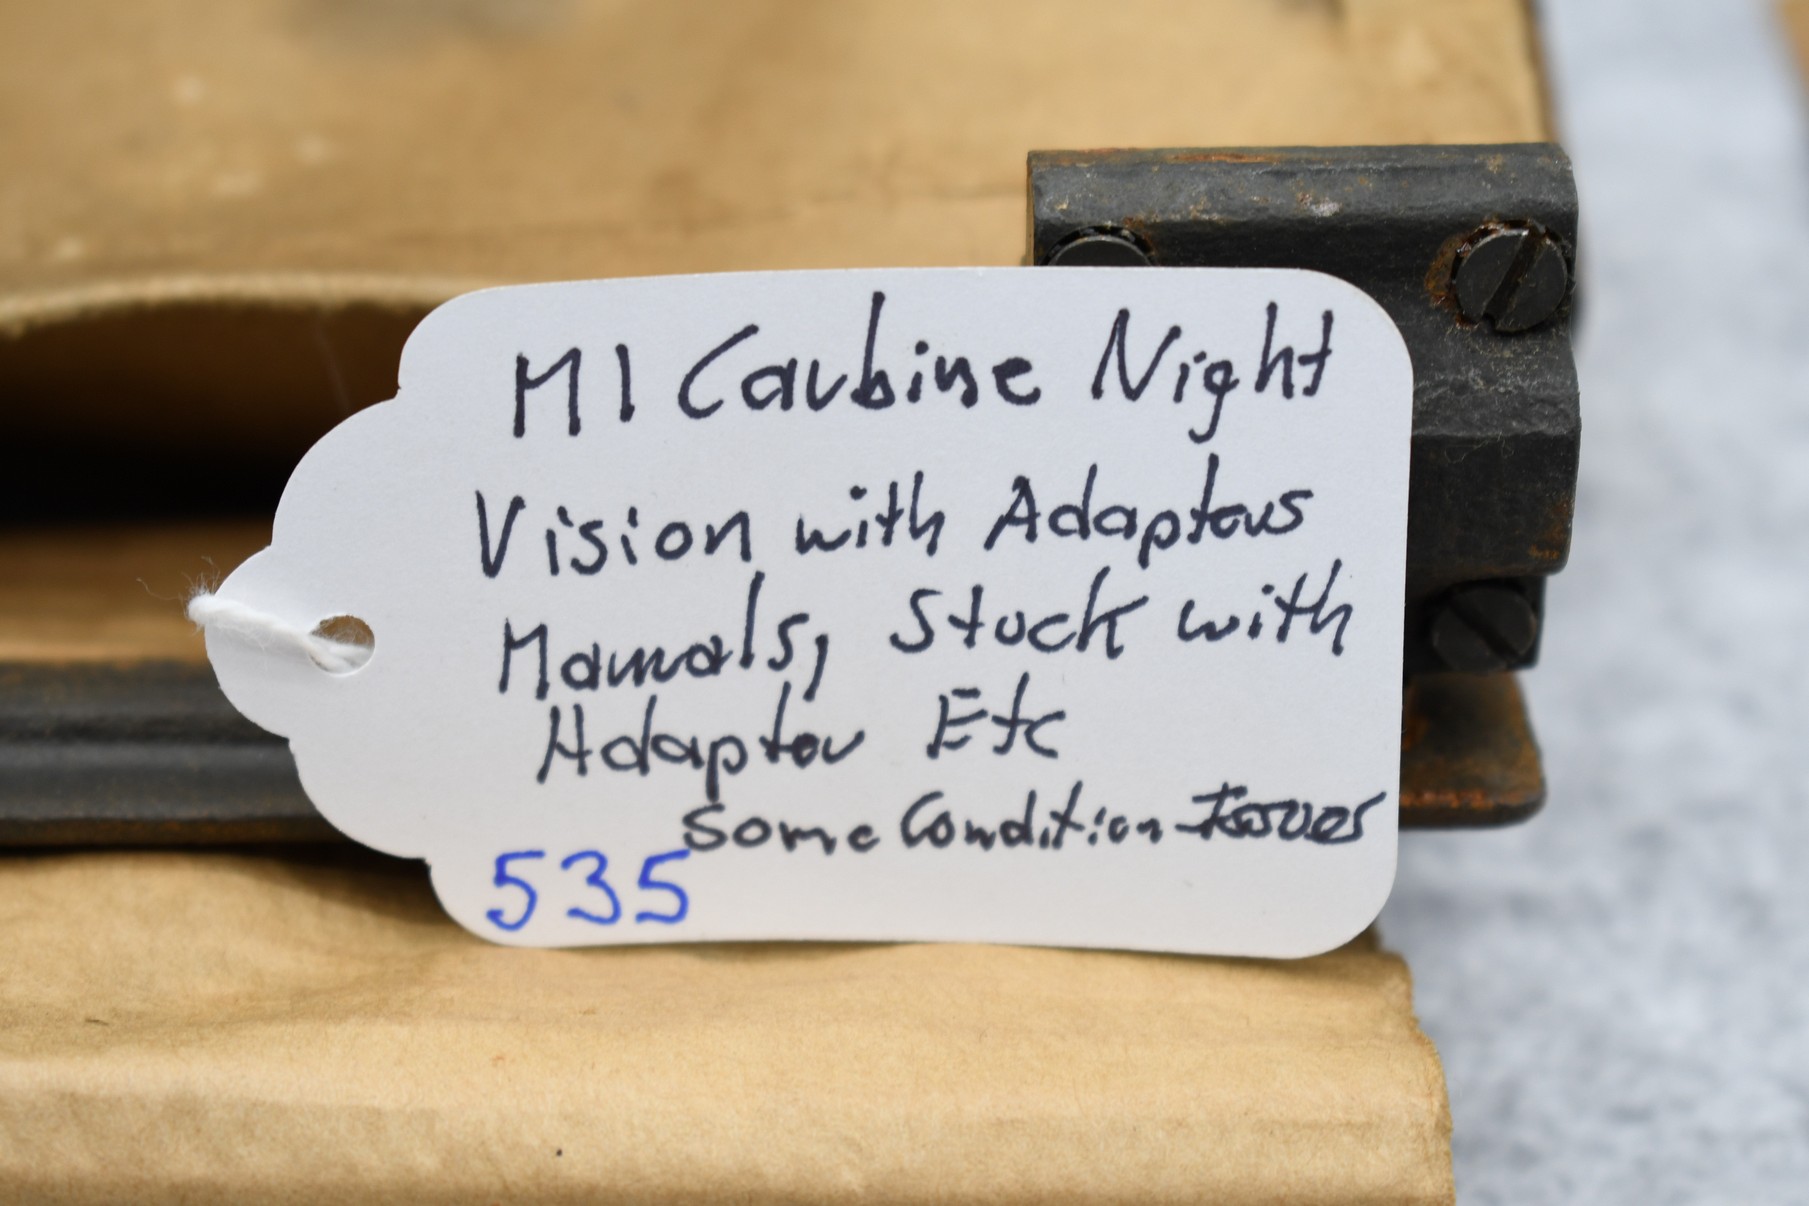 M1 Carbine Night
Vision with Adaptors
Manuals, Stock with
Adaptor Etc
Some Condition Issues
535